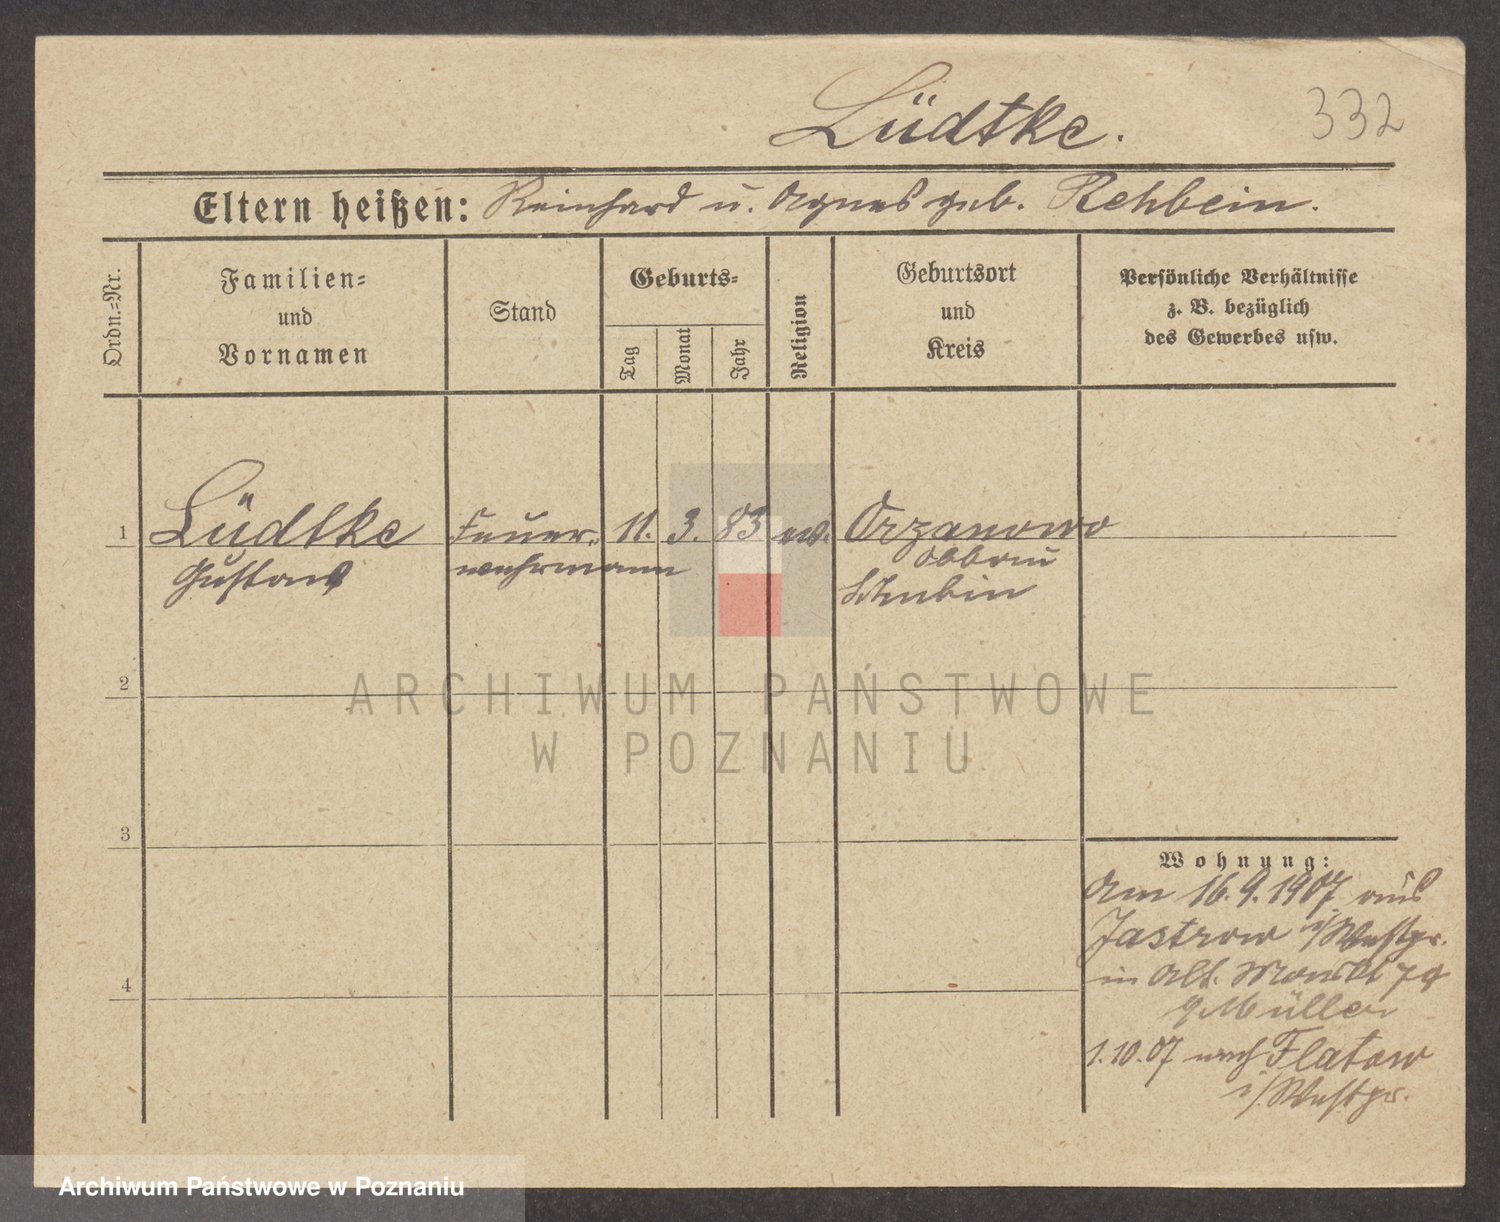 Lüdtke.
332
Eltern heißen: Reinhard u. Agnes geb. Rehbein.
Ordn.=Nr.
Familien=
und
Vornamen
Stand
Geburts=
Tag
Monat
Jahr
Religion
Geburtsort
und
Kreis
Persönliche Verhältnisse
z. B. bezüglich
des Gewerbes usw.
1
Lüdtke
Gustav
Feuer-
wehrmann
11.
3.
83
ev.
Orzanowo
Abbau
Schubin
2
3
4
Wohnung:
Am 16.9.1907 aus
Jastrow i/Westpr.
in Alt.
Müller
1.10.07 nach Flatow
i/Westpr.
ARCHIWUM PAŃSTWOWE
W POZNANIU
Archiwum Państwowe w Poznaniu